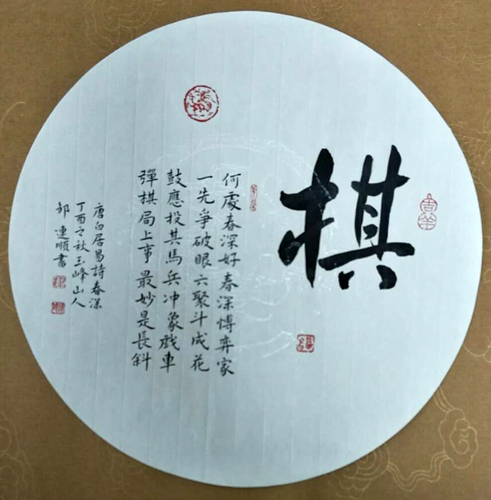 棋
何處春深好春深博弈家
一先爭破眼六聚斗成花
鼓應投其馬兵冲象戲車
彈棋局上事最妙是長斜
唐白居易詩春深
丁酉之秋玉峰山人
連順書